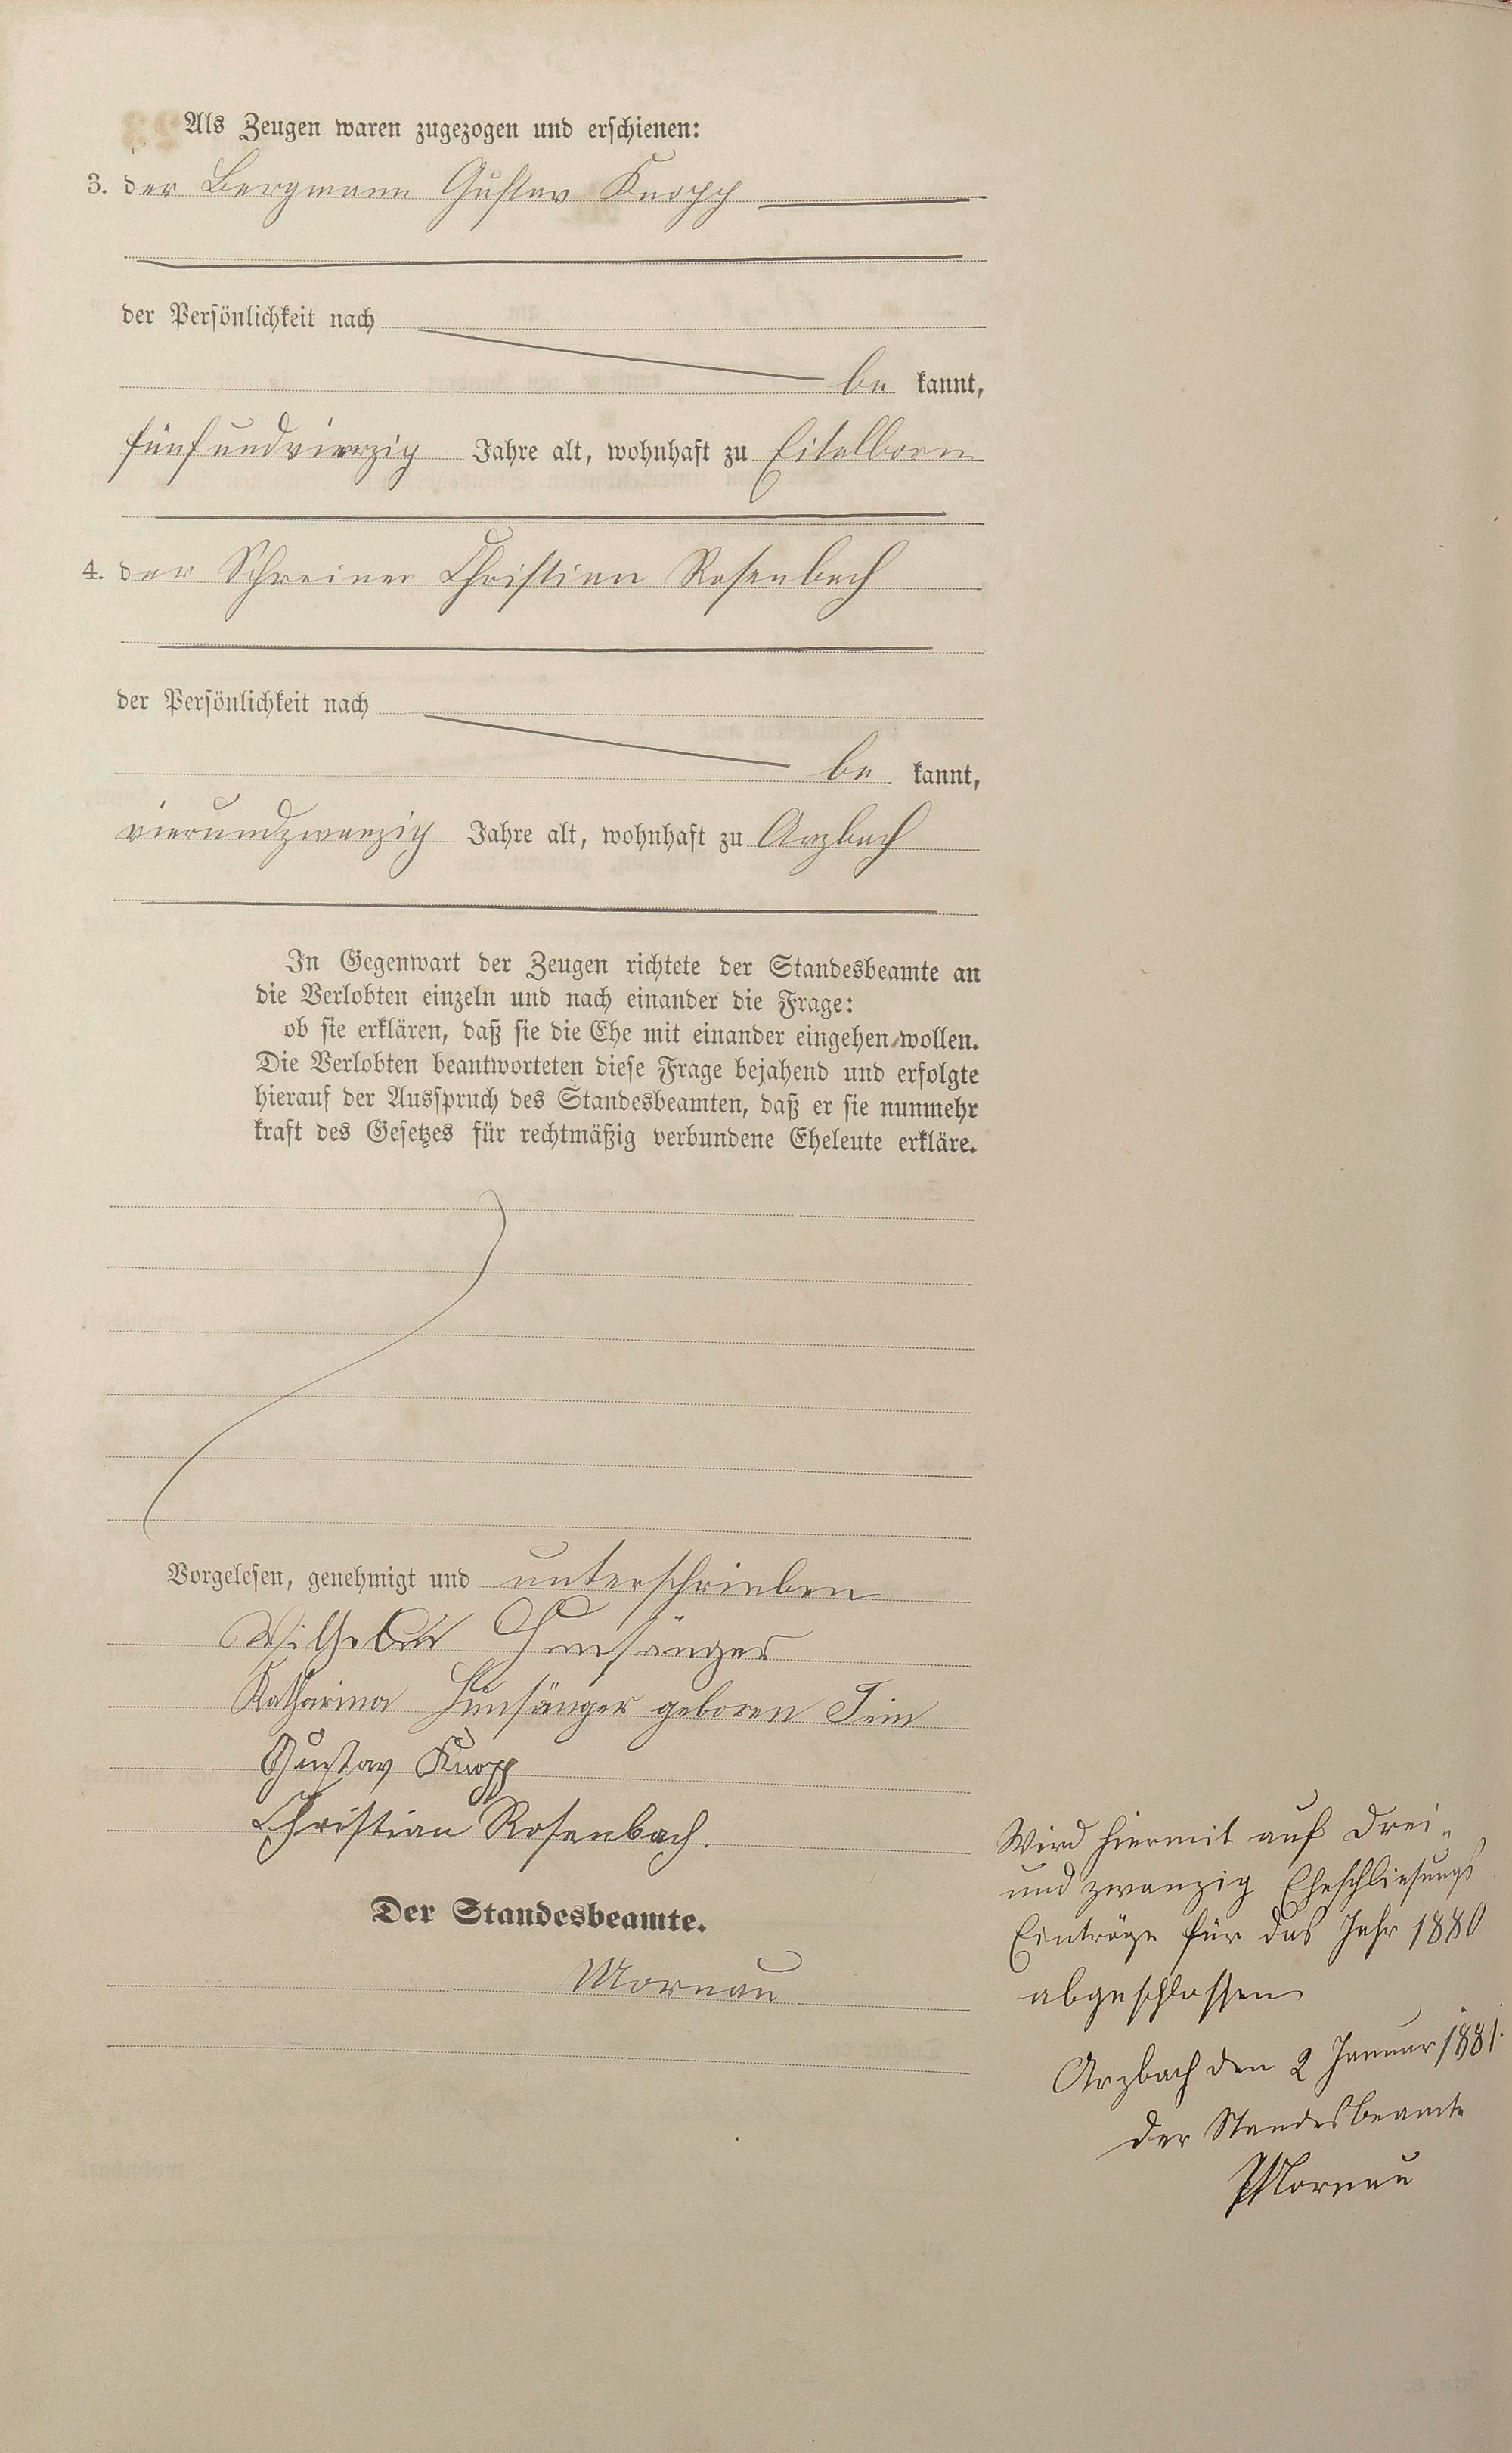 Als Zeugen waren zugezogen und erschienen:
3. der Bergmann Gustav Knopp
der Persönlichkeit nach
be kannt,
fünfundvierzig Jahre alt, wohnhaft zu Eitelborn
4. der Schreiner Christian Rosenbach
der Persönlichkeit nach
be kannt,
vierundzwanzig Jahre alt, wohnhaft zu Arzbach
In Gegenwart der Zeugen richtete der Standesbeamte an
die Verlobten einzeln und nach einander die Frage:
ob sie erklären, daß sie die Ehe mit einander eingehen wollen.
Die Verlobten beantworteten diese Frage bejahend und erfolgte
hierauf der Ausspruch des Standesbeamten, daß er sie nunmehr
kraft des Gesetzes für rechtmäßig verbundene Eheleute erkläre.
Vorgelesen, genehmigt und unterschrieben
Wilhelm Hünsänger
Katharina Hünsänger geboren
Gustav Knopp
Christian Rosenbach.
Der Standesbeamte.
Mornau
Wird hiermit auf drei-
und zwanzig Eheschliesungs
Einträge für das Jahr 1880
abgeschlossen
Arzbach den 2 Januar 1881.
Der Standesbeamte
Mornau